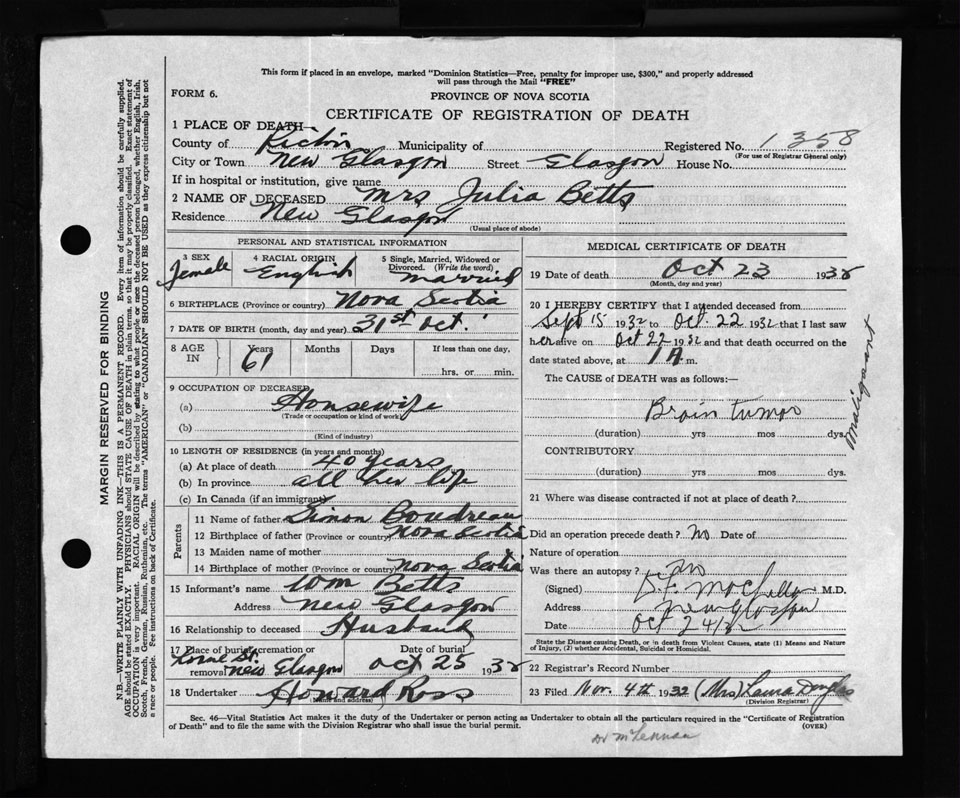 This form if placed in an envelope, marked "Dominion Statistics—Free, penalty for improper use, $300," and properly addressed
will pass through the Mail "FREE"
FORM 6.
PROVINCE OF NOVA SCOTIA
CERTIFICATE OF REGISTRATION OF DEATH
1 PLACE OF DEATH—
County of Pictou Municipality of Registered No. 1358
(For use of Registrar General only)
City or Town New Glasgow Street Glasgow House No.
If in hospital or institution, give name
2 NAME OF DECEASED Mrs Julia Betts
Residence New Glasgow
(Usual place of abode)
PERSONAL AND STATISTICAL INFORMATION
3 SEX Female 4 RACIAL ORIGIN English 5 Single, Married, Widowed or Divorced. (Write the word) Married
6 BIRTHPLACE (Province or country) Nova Scotia
7 DATE OF BIRTH (month, day and year) 31st Oct.
8 AGE IN Years 61 Months Days If less than one day, hrs. or min.
9 OCCUPATION OF DECEASED
(a) Housewife
(Trade or occupation or kind of work)
(b)
(Kind of industry)
10 LENGTH OF RESIDENCE (in years and months)
(a) At place of death 40 years
(b) In province all her life
(c) In Canada (if an immigrant)
Parents
11 Name of father Simon Boudreau
12 Birthplace of father (Province or country) Nova Scotia
13 Maiden name of mother
14 Birthplace of mother (Province or country) Nova Scotia
15 Informant's name Wm Betts
Address New Glasgow
16 Relationship to deceased Husband
17 Place of burial, cremation or removal Lorne St. New Glasgow Date of burial Oct 25 1932
18 Undertaker Howard Ross
(Name and address)
MEDICAL CERTIFICATE OF DEATH
19 Date of death Oct 23 1932
(Month, day and year)
20 I HEREBY CERTIFY that I attended deceased from
Sept 15 1932 to Oct. 22 1932 that I last saw
her alive on Oct 22 1932 and that death occurred on the
date stated above, at 1 A m.
The CAUSE OF DEATH was as follows:—
Brain Tumor
Malignant
(duration) yrs mos dys.
CONTRIBUTORY
(duration) yrs mos dys.
21 Where was disease contracted if not at place of death?
Did an operation precede death? No Date of
Nature of operation
Was there an autopsy? no
(Signed) M.D.
Address New Glasgow
Date Oct 24/32
State the Disease causing Death, or in death from Violent Causes, state (1) Means and Nature
of Injury, (2) whether Accidental, Suicidal or Homicidal.
22 Registrar's Record Number
23 Filed Nov. 4th 1932 (Mrs) Laura Douglas
(Division Registrar)
Sec. 46—Vital Statistics Act makes it the duty of the Undertaker or person acting as Undertaker to obtain all the particulars required in the "Certificate of Registration
of Death" and to file the same with the Division Registrar who shall issue the burial permit.
(OVER)
Dr McLennan
MARGIN RESERVED FOR BINDING
N.B.—WRITE PLAINLY WITH UNFADING INK—THIS IS A PERMANENT RECORD. Every item of information should be carefully supplied.
AGE should be stated EXACTLY. PHYSICIANS should STATE CAUSE OF DEATH in plain terms, so that it may be properly classified. Exact statement of
OCCUPATION is very important. RACIAL ORIGIN will be described by stating to what people or race the deceased person belonged, whether English, Irish,
Scotch, French, German, Russian, Ruthenian, etc. The terms "AMERICAN" or "CANADIAN" SHOULD NOT BE USED as they express citizenship but not
a race or people. See instructions on back of Certificate.